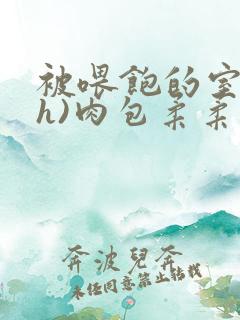 被喂饱的室
h)肉包柔柔
奔波兒奔
未经同意禁止转载